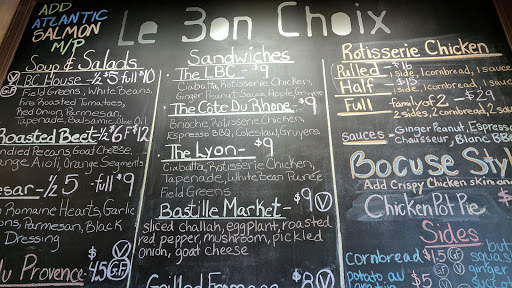 ADD
ATLANTIC
SALMON
M/P
Le Bon Choix
Soup & Salads
V BC House - ½ $5 full $10
GF Field Greens, White Beans,
Fire Roasted Tomatoes,
Red Onion, Parmesan,
Tapenade, Balsamic Olive Oil
Roasted Beet - ½ $6 F $12
Candied Pecans, Goat Cheese,
Orange Aioli, Orange Segments
esar - ½ 5 - full $9
Romaine Hearts, Garlic
ons, Parmesan, Black
Dressing
du Provence - $4.5 V G.F
Sandwiches
The LBC - $9
Ciabatta, Rotisserie Chicken,
Ginger Peanut Sauce, Apple, Gruyere
The Côte Du Rhone - $9
Brioche, Rotisserie Chicken,
Espresso BBQ, Coleslaw, Gruyere
The Lyon - $9
Ciabatta, Rotisserie Chicken,
Tapenade, White Bean Puree
Field Greens
Bastille Market - $9 V
sliced challah, eggplant, roasted
red pepper, mushroom, pickled
onion, goat cheese
Grilled Fromage $8 V
Rotisserie Chicken
Pulled - $16 1 side, 1 cornbread, 1 sauce
Half - $15 1 side, 1 cornbread, 1 sauce
Full - Family of 2 - $29
2 sides, 2 cornbread, 2 sauc
sauces - Ginger Peanut, Espresso
Chausseur, Blanc BB
Bocuse Styl
Add Crispy Chicken skin an
Chicken Pot Pie $
Sides
cornbread $1.5 GF but
squas
potato au $5 ginger